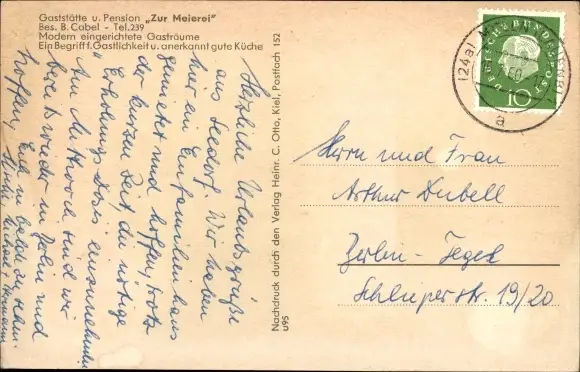 Gaststätte u. Pension „Zur Meierei"
Bes. B. Cabel - Tel. 239
Modern eingerichtete Gasträume
Ein Begriff f. Gastlichkeit u. anerkannt gute Küche
Herzliche Urlaubsgrüße
aus Seedorf. Wir haben
hier ein Einfamilienhaus
gemietet und hoffen, trotz
der kurzen Zeit die nötige
Erholungs einzunehmen.
Am Mittwoch sind wir
bereits wieder in Berlin und
hoffen, Euch bald zu sehen.
Nachdruck durch den Verlag Heinr. C. Otto, Kiel, Postfach 152
u95
DEUTSCHE BUNDESPOST
10
(24a)
60
a
Herrn und Frau
Arthur Dubell
Berlin-Tegel
Schlieperstr. 19/20